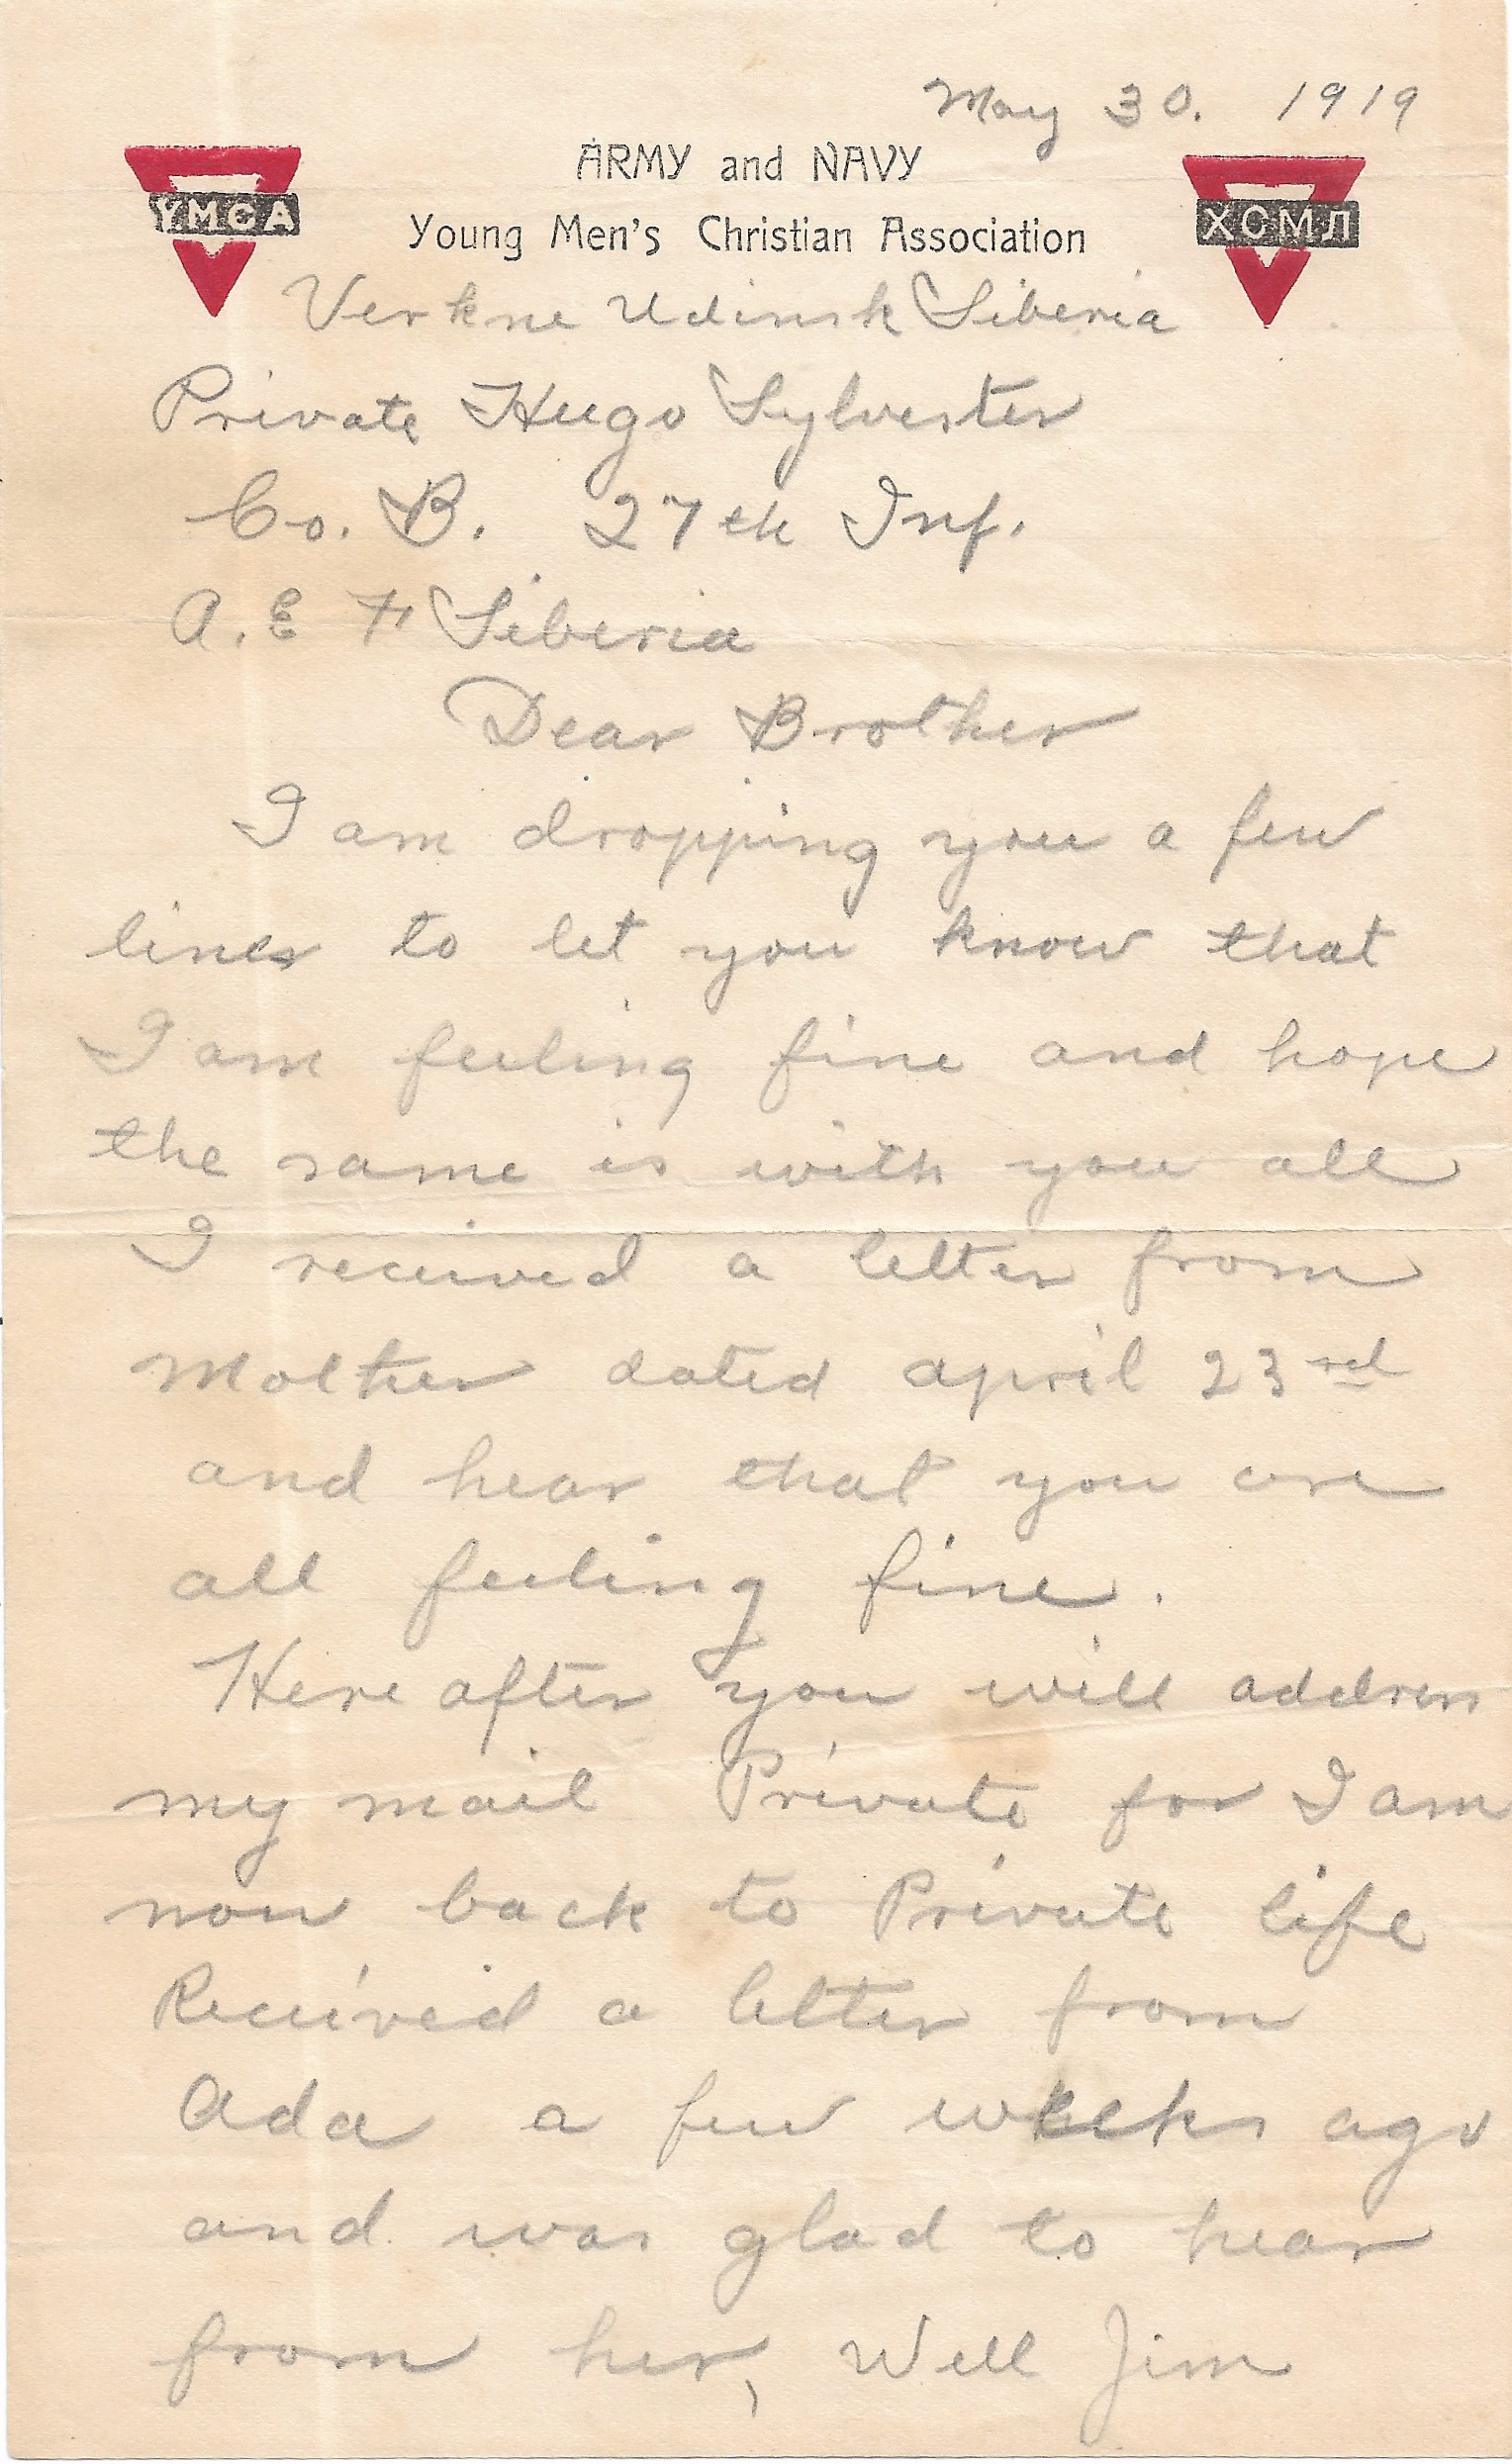 May 30. 1919
ARMY and NAVY
YMCA
ХСМЛ
Young Men's Christian Association
Verkne Udinsk Siberia
Private Hugo Sylvester
Co. B. 27th Inf.
A. E F Siberia
Dear Brother
I am dropping you a few
lines to let you know that
I am feeling fine and hope
the same is with you all
I received a letter from
Mother dated april 23rd
and hear that you are
all feeling fine.
Here after you will address
my mail Private for I am
now back to Private life
Received a letter from
Ada a few weeks ago
and was glad to hear
from her, Well Jim